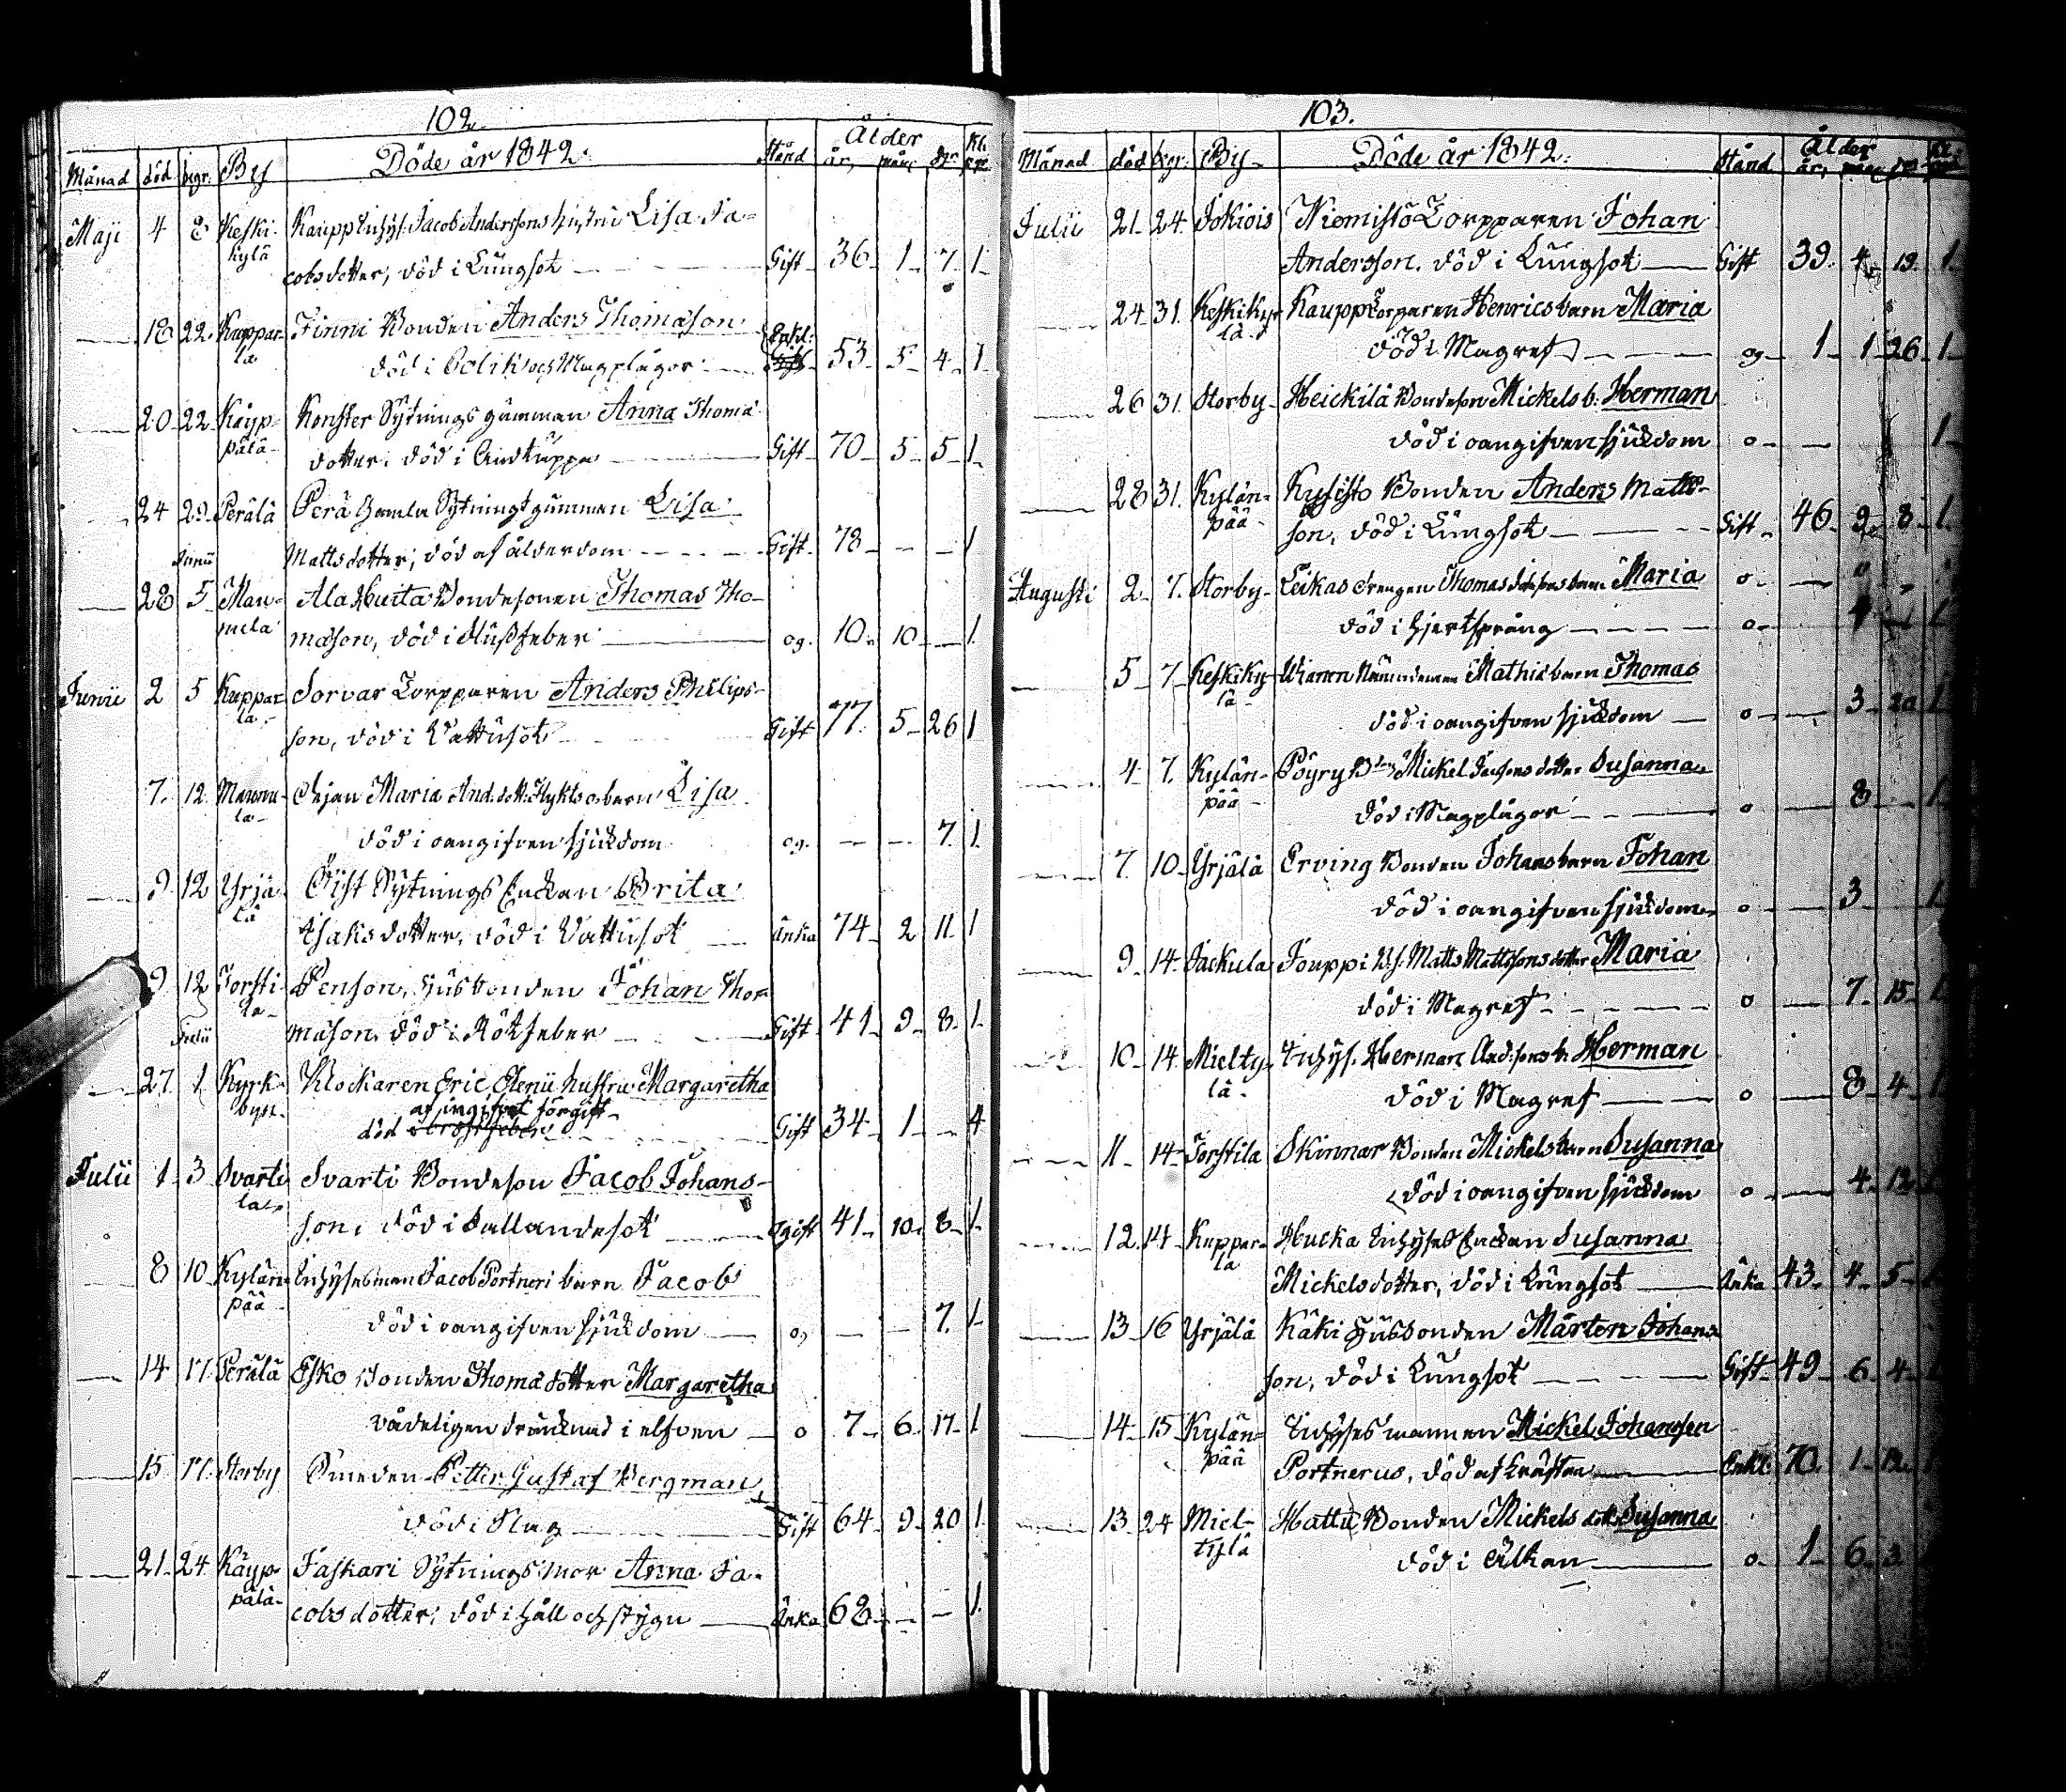 102.
Döde år 1842.
Månad död begr. By Stånd Ålder år, mån, dr. Kl.
Maji 4 8 Keski- Kaupp Inhys. Jacob Anderssons hustru Lisa Ja-
kylä cobsdotter, död i Lungsot Gift 36 1 7 1
18 22 Kuppar- Finni Bonden Anders Thomason
la död i Colik och Magplågor Enkl. Gift 53 5 4 1
20 22 Käyp- Konster Sytnings gumman Anna Thoma
pälä dotter, död i Andtäppa Gift 70 5 5 1
24 29 Perälä Perä Gamla Sytningsgumman Lisa
Junii Mattsdotter, död af ålderdom Gift 78 - - 1
28 5 Man- Ala Huita Bondesonen Thomas Tho-
nula mason, död i Flussfeber og. 10 10 - 1
Junii 2 5 Kuppar- Sorvar Torpparen Anders Philips-
la son, död i Vattusot Gift 77 5 26 1
7. 12 Mannu- Pigan Maria And. dott. Flyktis o. barn Lisa
la död i oangifven sjukdom og. - - 7 1
9 12 Yrjä- Öist Sytnings Enckan Brita
lä Isaksdotter, död i Vattusot Änka 74 2 11 1
9 12 Torsti- Penson, Husbonden Johan Tho-
la
Julii mason, död i Rötfeber Gift 41 9 8 1
27 1 Kyrk- Klockaren Eric Elenii hustru Margaretha
byn af ingifvet förgift
död Gift 34 1 - 4
Julii 1 3 Svarti- Svarti Bondeson Jacob Johans-
la son, död i Fallandesot Ogift 41 10 8 1
8 10 Kylän- Inhysesman Jacob Portneri barn Jacob
pää död i oangifven sjukdom o, - - 7. 1
14 17 Perälä Esko Bonden Thomä dotter Margaretha
vådeligen drunknad i elfven o 7 6 17 1
15 17 Storby Smeden Petter Gustaf Bergman
död i Slag Gift 64 9 20 1
21 24 Käyp- Jaskari Sytnings mor Anna Ja-
pälä cobsdotter, död i håll och stygn Änka 68 - - 1.
103.
Döde år 1842.
Månad död begr. By Stånd Ålder år, mån
Julii 21 24 Jokiois Niemistö Torpparen Johan
Andersson, död i Lungsot Gift 39 4 19 1
24 31. Keskiky- Kaupp Torparen Henrics barn Maria
lä död i Magref og 1 1 26 1
26 31. Storby Heickilä Bondeson Mickels b. Herman
död i oangifven sjukdom o - 1
28 31. Kylän- Kyfistö Bonden Anders Matts-
pää son, död i Lungsot Gift 46 9 8 1.
Augusti 2 7. Storby Leikas Drengen Thomas Johansons barn Maria o
död i hjertsprång o 4 1
5 7 Keskiky- Nämndeman Mathias barn Thomas
lä död i oangifven sjukdom o - 3 20 1
4 7. Kylän- Pöyry Bden Mickel Jacsons dotter Susanna
pää död i Magplågor o - 8 - 1
7. 10 Yrjälä Erving Bonden Johans barn Johan
död i oangifven sjukdom o - 3 1
9 14 Jackula Jouppi Bs. Matts Mattssons dotter Maria
död i Magref o - 7 15 1
10 14 Mielty- Inhys. Herman And.sons b. Herman
lä död i Magref o - 8 4 1
11 14 Torstila Skinnar Bonden Mickels barn Susanna
död i oangifven sjukdom o - 4 12
12. 14 Kuppar- Hucka Inhyses Enckan Susanna
la Mickelsdotter, död i Lungsot Änka 43 4 5
13 16 Yrjälä Käki Husbonden Mårten Johans
son, död i Lungsot Gift 49 6 4
14 15 Kylän- Inhyses mannen Mickel Johansson
pää Portnerus, död af Kräftan Enkl. 70 1 12
13 24 Miel- Hattu Bonden Mickels dott. Susanna
tylä död i Ältan o 1 6 3